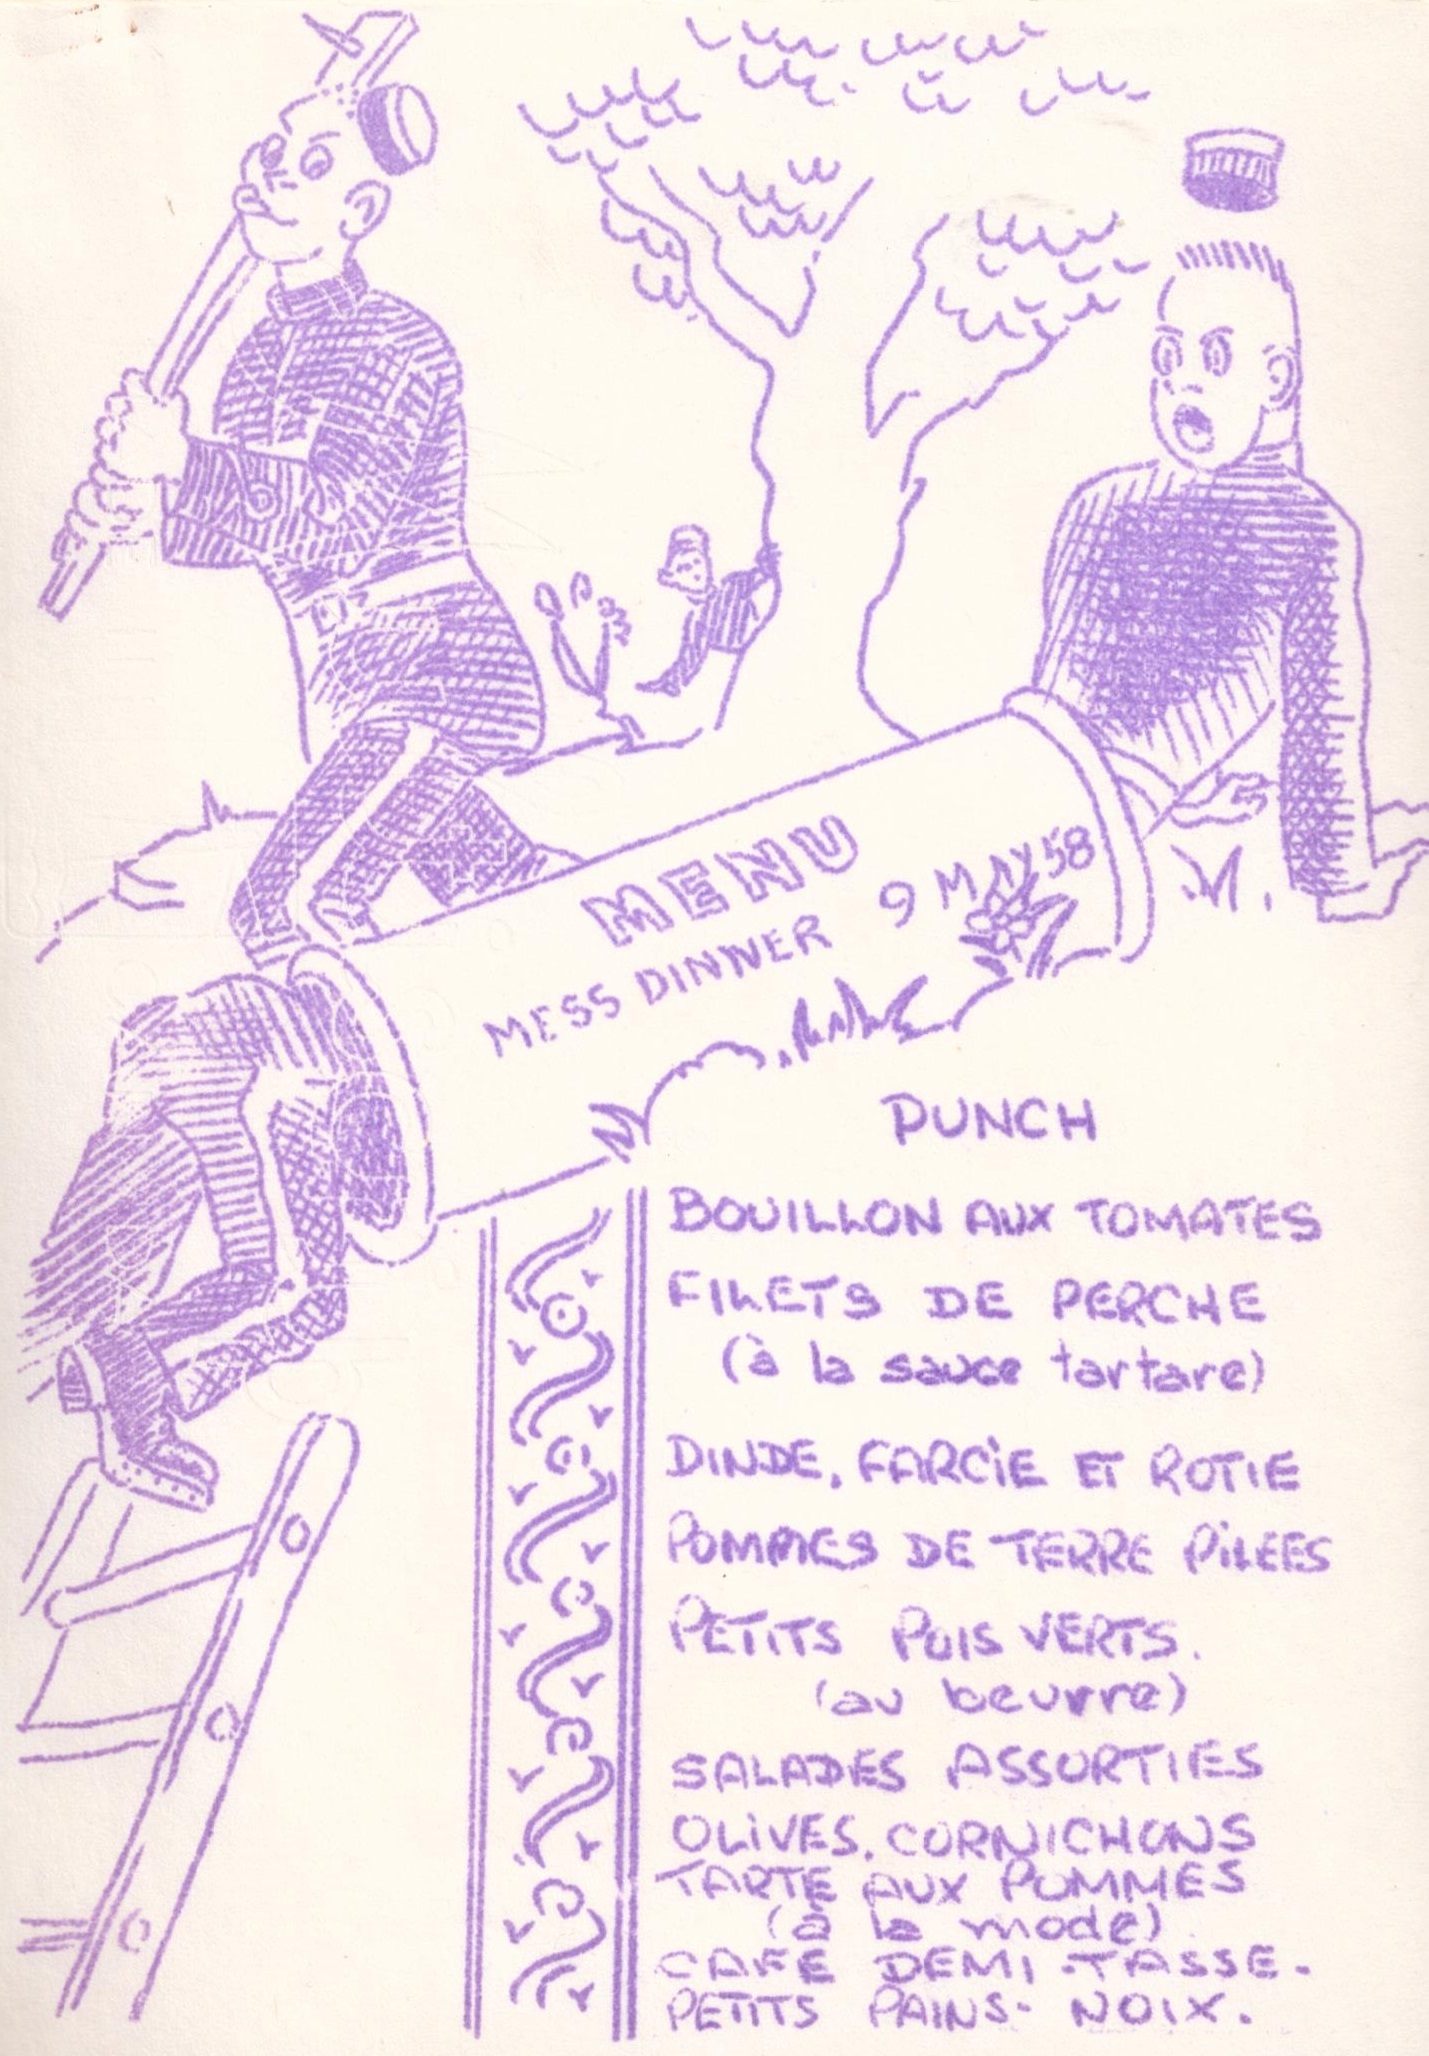 MENU
MESS DINNER 9 MAY 58
PUNCH
BOUILLON AUX TOMATES
FILETS DE PERCHE
(à la sauce tartare)
DINDE, FARCIE ET ROTIE
POMMES DE TERRE PILEES
PETITS POIS VERTS.
(au beurre)
SALADES ASSORTIES
OLIVES, CORNICHONS
TARTE AUX POMMES
(à la mode)
CAFE DEMI-TASSE-
PETITS PAINS- NOIX.